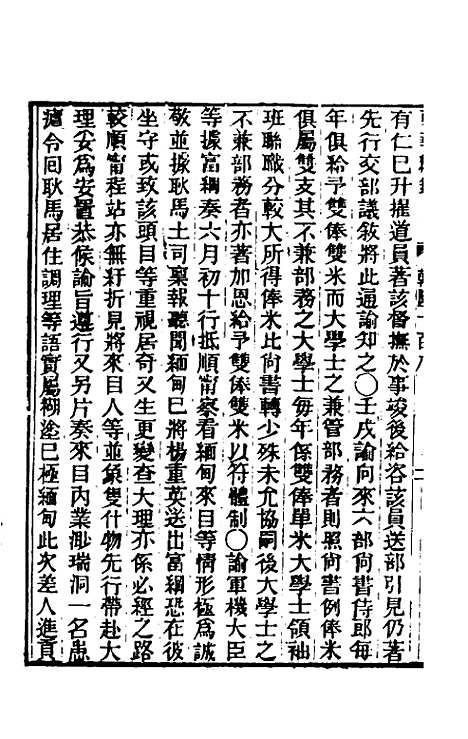 有仁巳升擢道員著該督撫於事竣後給咨該員送部引見仍著
先行交部議敘將此通諭知之〇壬戌諭向來六部尙書侍郎每
年俱給予雙俸雙米而大學士之兼管部務者則照尙書例俸米
俱屬雙支其不兼部務之大學士每年係雙俸單米大學士領袖
班聯職分較大所得俸米比尙書轉少殊未允協嗣後大學士之
不兼部務者亦著加恩給予雙俸雙米以符體制〇諭軍機大臣
等據富綱奏六月初十行抵順甯察看緬甸來目等情形極爲誠
敬並據耿馬土司稟報聽聞緬甸巳將楊重英送出富綱恐在彼
坐守或致該頭目等重視居奇又生更變查大理亦係必經之路
較順甯程站亦無紆折見將來目人等並象隻什物先行帶赴大
理妥爲安置恭候諭旨遵行又另片奏來目內業渺瑞洞一名患
瘧令回耿馬居住調理等語實屬糊塗巳極緬甸此次差人進貢